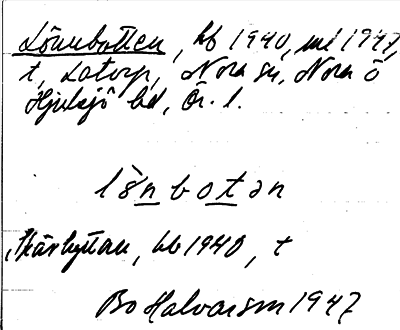 Lönnbotten, hb 1940, ml 1947,
t, Latorp, Nora sn, Nora o
Hjulsjö bd, Ör. l.
lö̀nbotən
hb 1940, t
Bo Halvarsson 1947